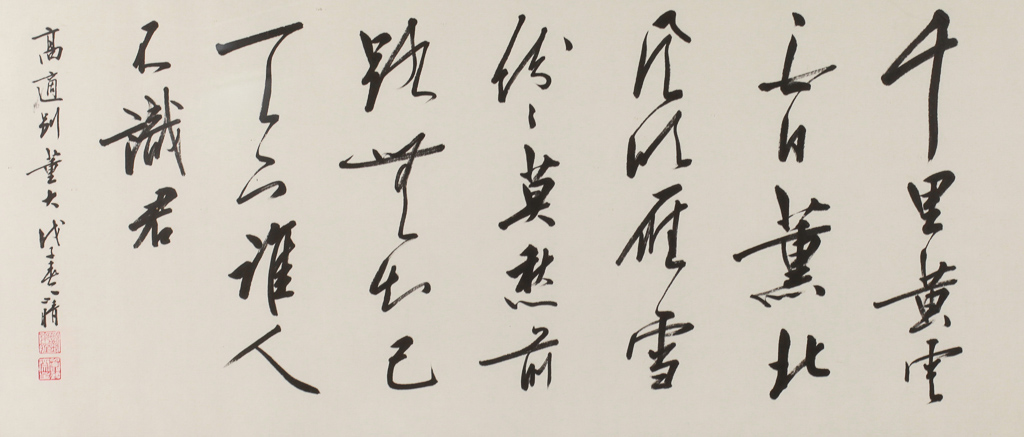 千里黄雲
白日薰北
風吹雁雪
紛〻莫愁前
路無知己
天下誰人
不識君
高適別董大 戊子春